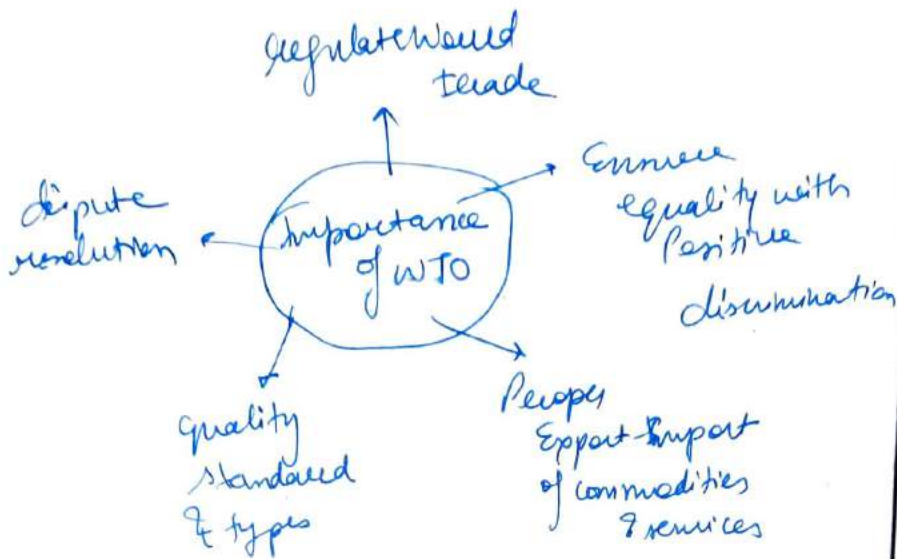 regulate World
trade
Ensure
equality with
Positive
discrimination
Importance
of WTO
dispute
resolution
Proper
Export-Import
of commodities
& services
quality
standard
& types